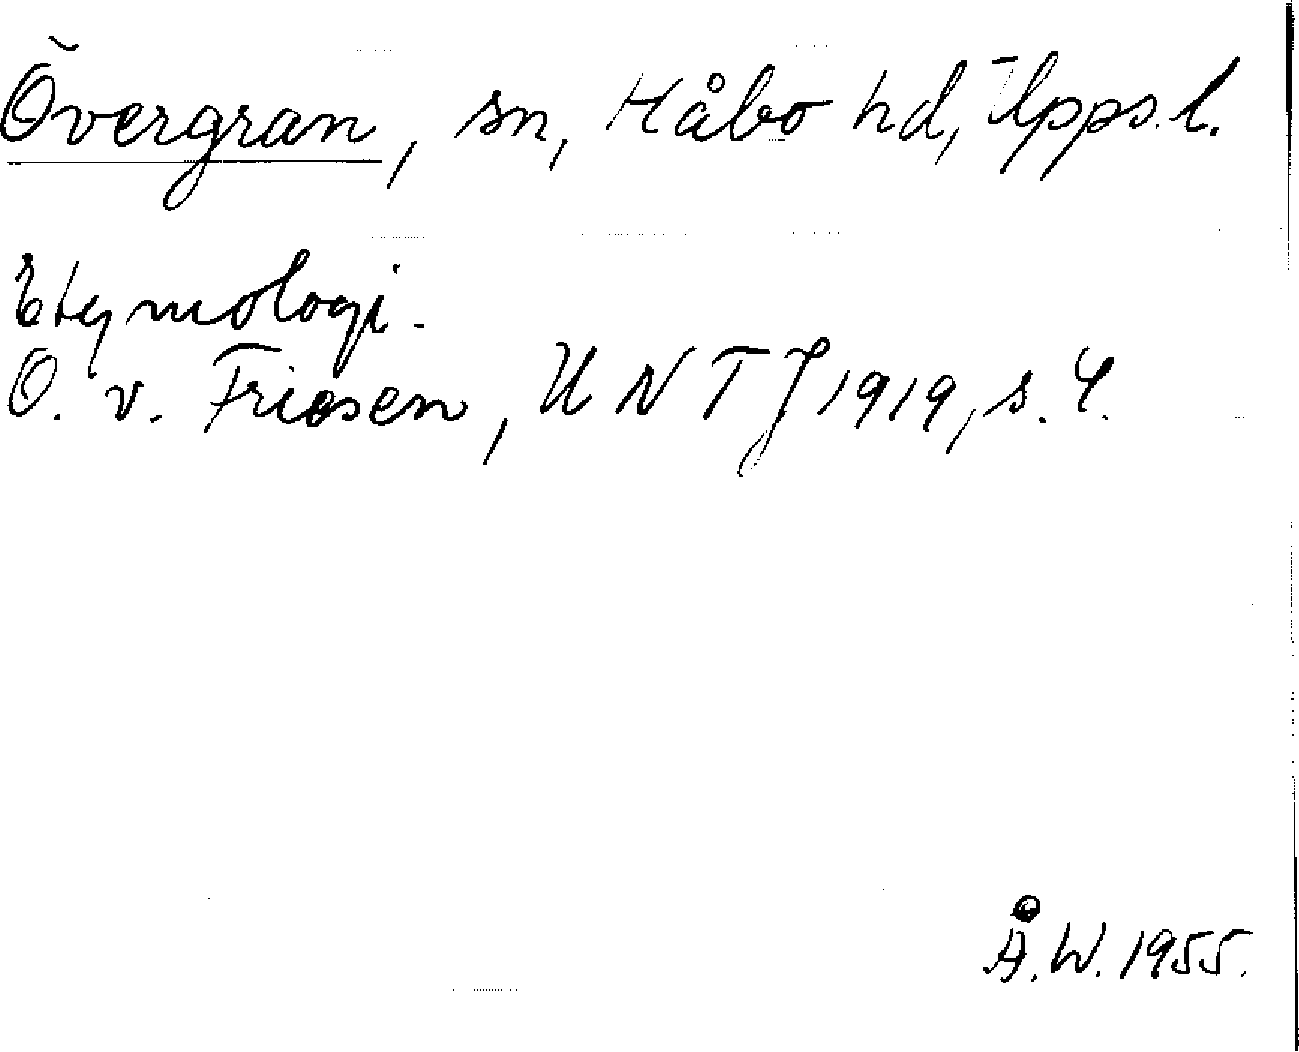 Övergran, sn, Håbo hd, Upps. l.
Etymologi.
O. v. Friesen, UNTJ 1919, s. 4.
Å. W. 1955.